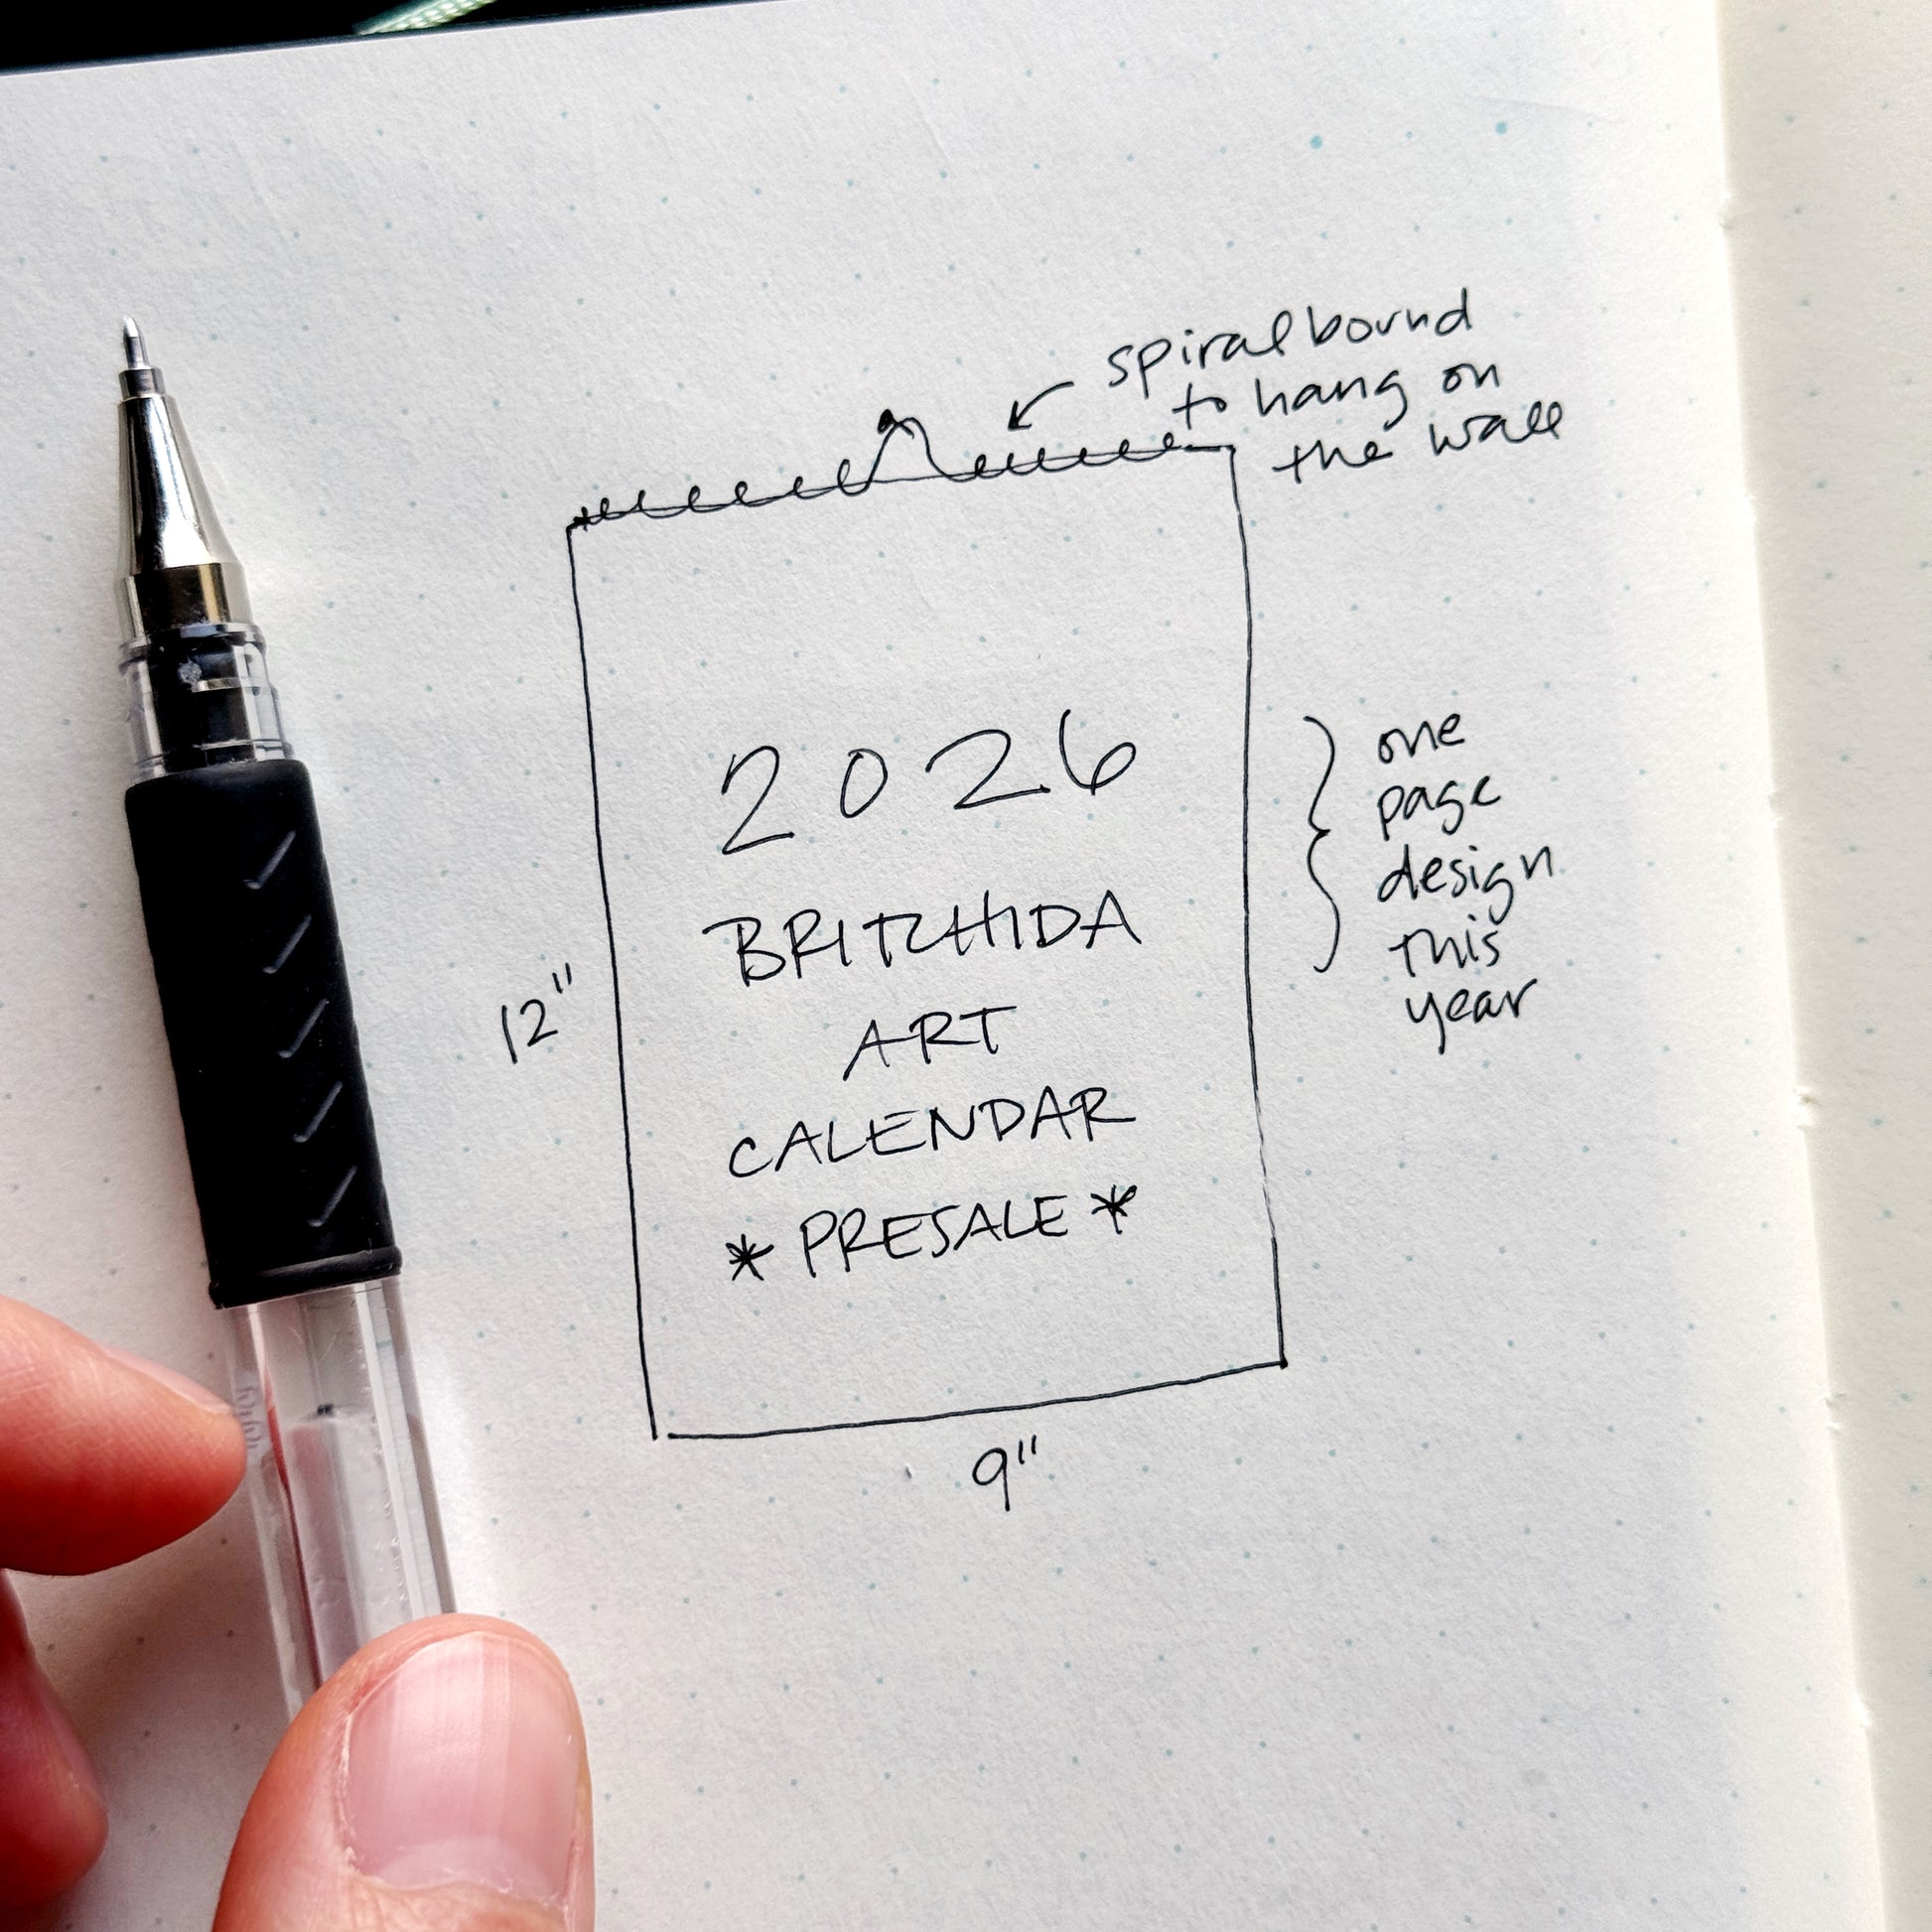 spiral bound
to hang on
the wall
2026
BRITCHIDA
ART
CALENDAR
* PRESALE *
one
page
design
this
year
12"
9"